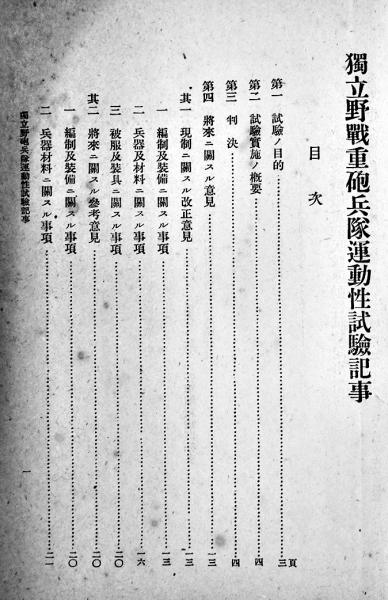 獨立野戰重砲兵隊運動性試驗記事
目次
第一 試驗ノ目的…………三頁
第二 試驗實施ノ概要…………四
第三 判決…………四
第四 將來ニ關スル意見…………一三
其一 現制ニ關スル改正意見…………一三
一 編制及裝備ニ關スル事項…………一三
二 兵器及材料ニ關スル事項…………一六
三 被服及裝具ニ關スル事項…………二〇
其二 將來ニ關スル參考意見…………二〇
一 編制及裝備ニ關スル事項…………二〇
二 兵器材料ニ關スル事項…………二一
獨立野砲兵隊運動性試驗記事
一